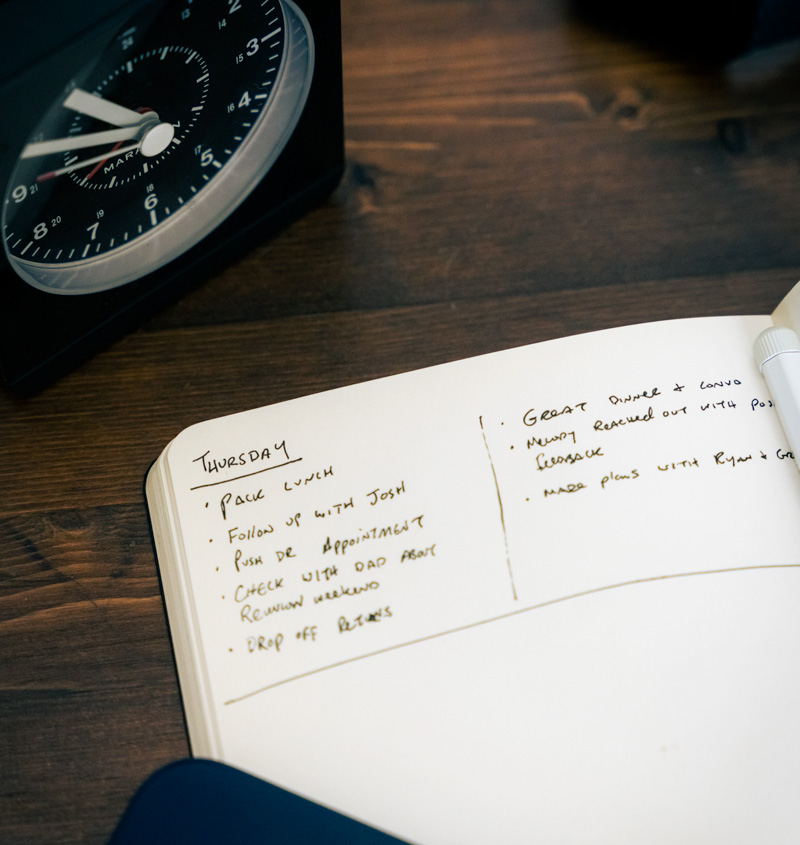 24
13
14
2
15
3
16
4
17
5
18
6
19
7
20
8
21
9
THURSDAY
• PACK LUNCH
• FOLLOW UP WITH JOSH
• PUSH DR APPOINTMENT
• CHECK WITH DAD ABOUT
REUNION WEEKEND
• DROP OFF RETURNS
• GREAT DINNER + CONVO
• MELODY REACHED OUT WITH
FEEDBACK
• MADE PLANS WITH RYAN +